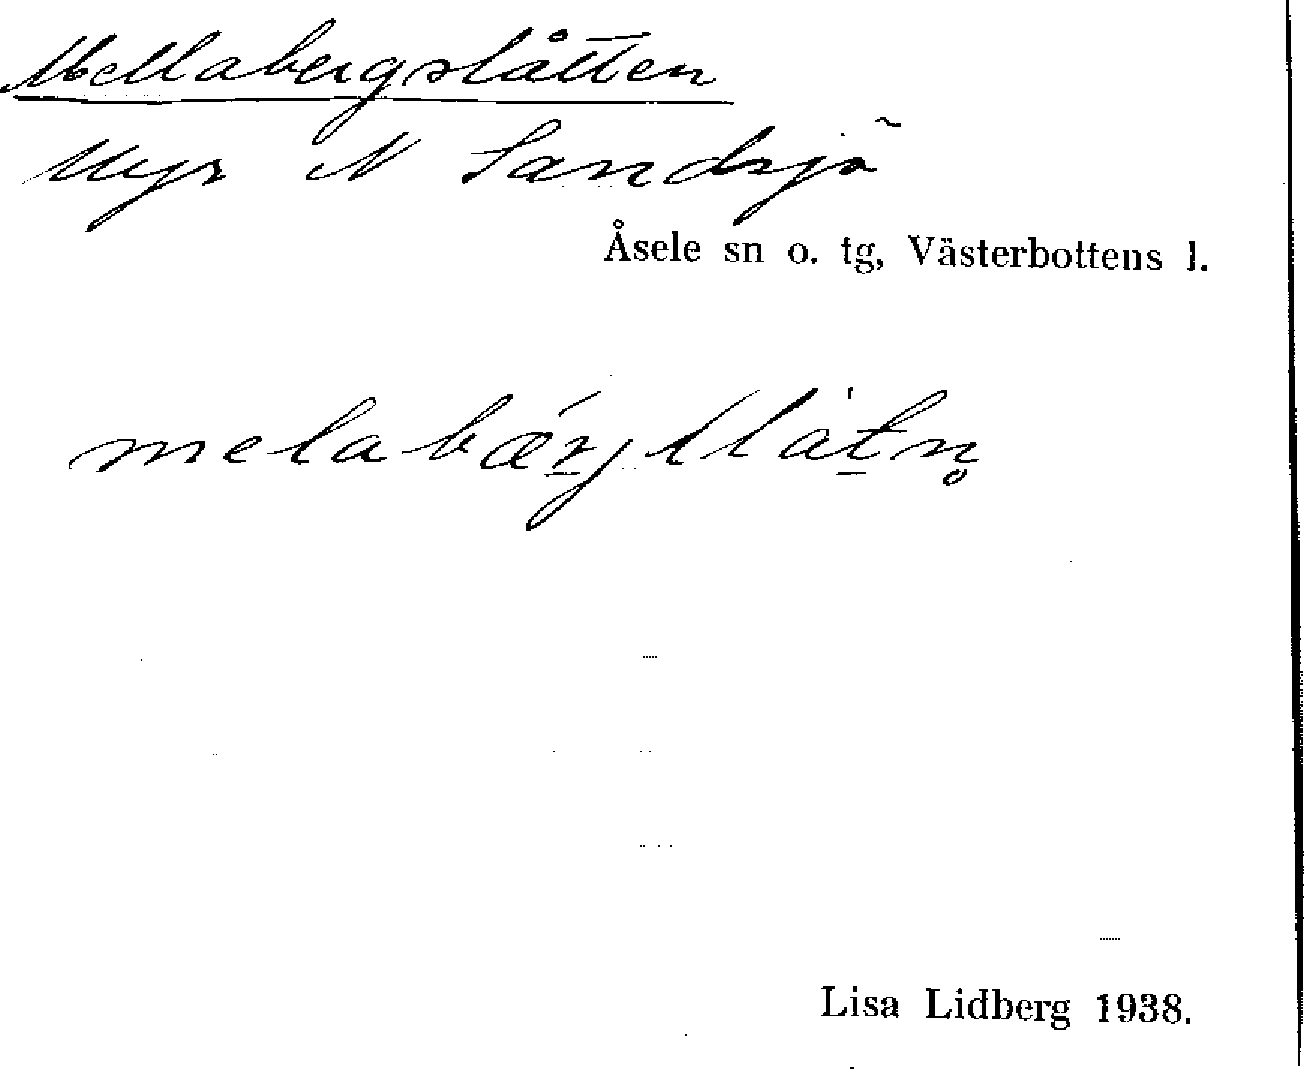 Mellabergslåtten
Myr N Sandsjö
Åsele sn o. tg, Västerbottens l.
Lisa Lidberg 1938.